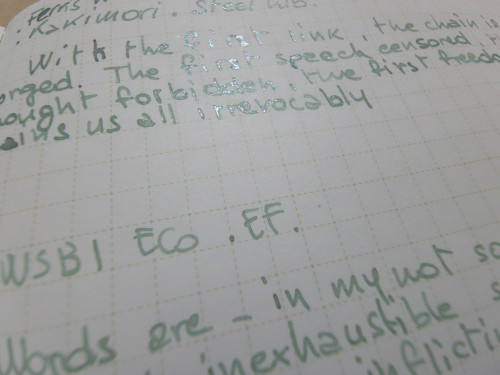 . Kakimori. Steel nib.
With the first link, the chain is
orged. The first speech censored
ought forbidden, the first freedo
ains us all irrevocably
WSB1 ECO . EF.
Words are - in my not so
inexhaustible s
inflictin